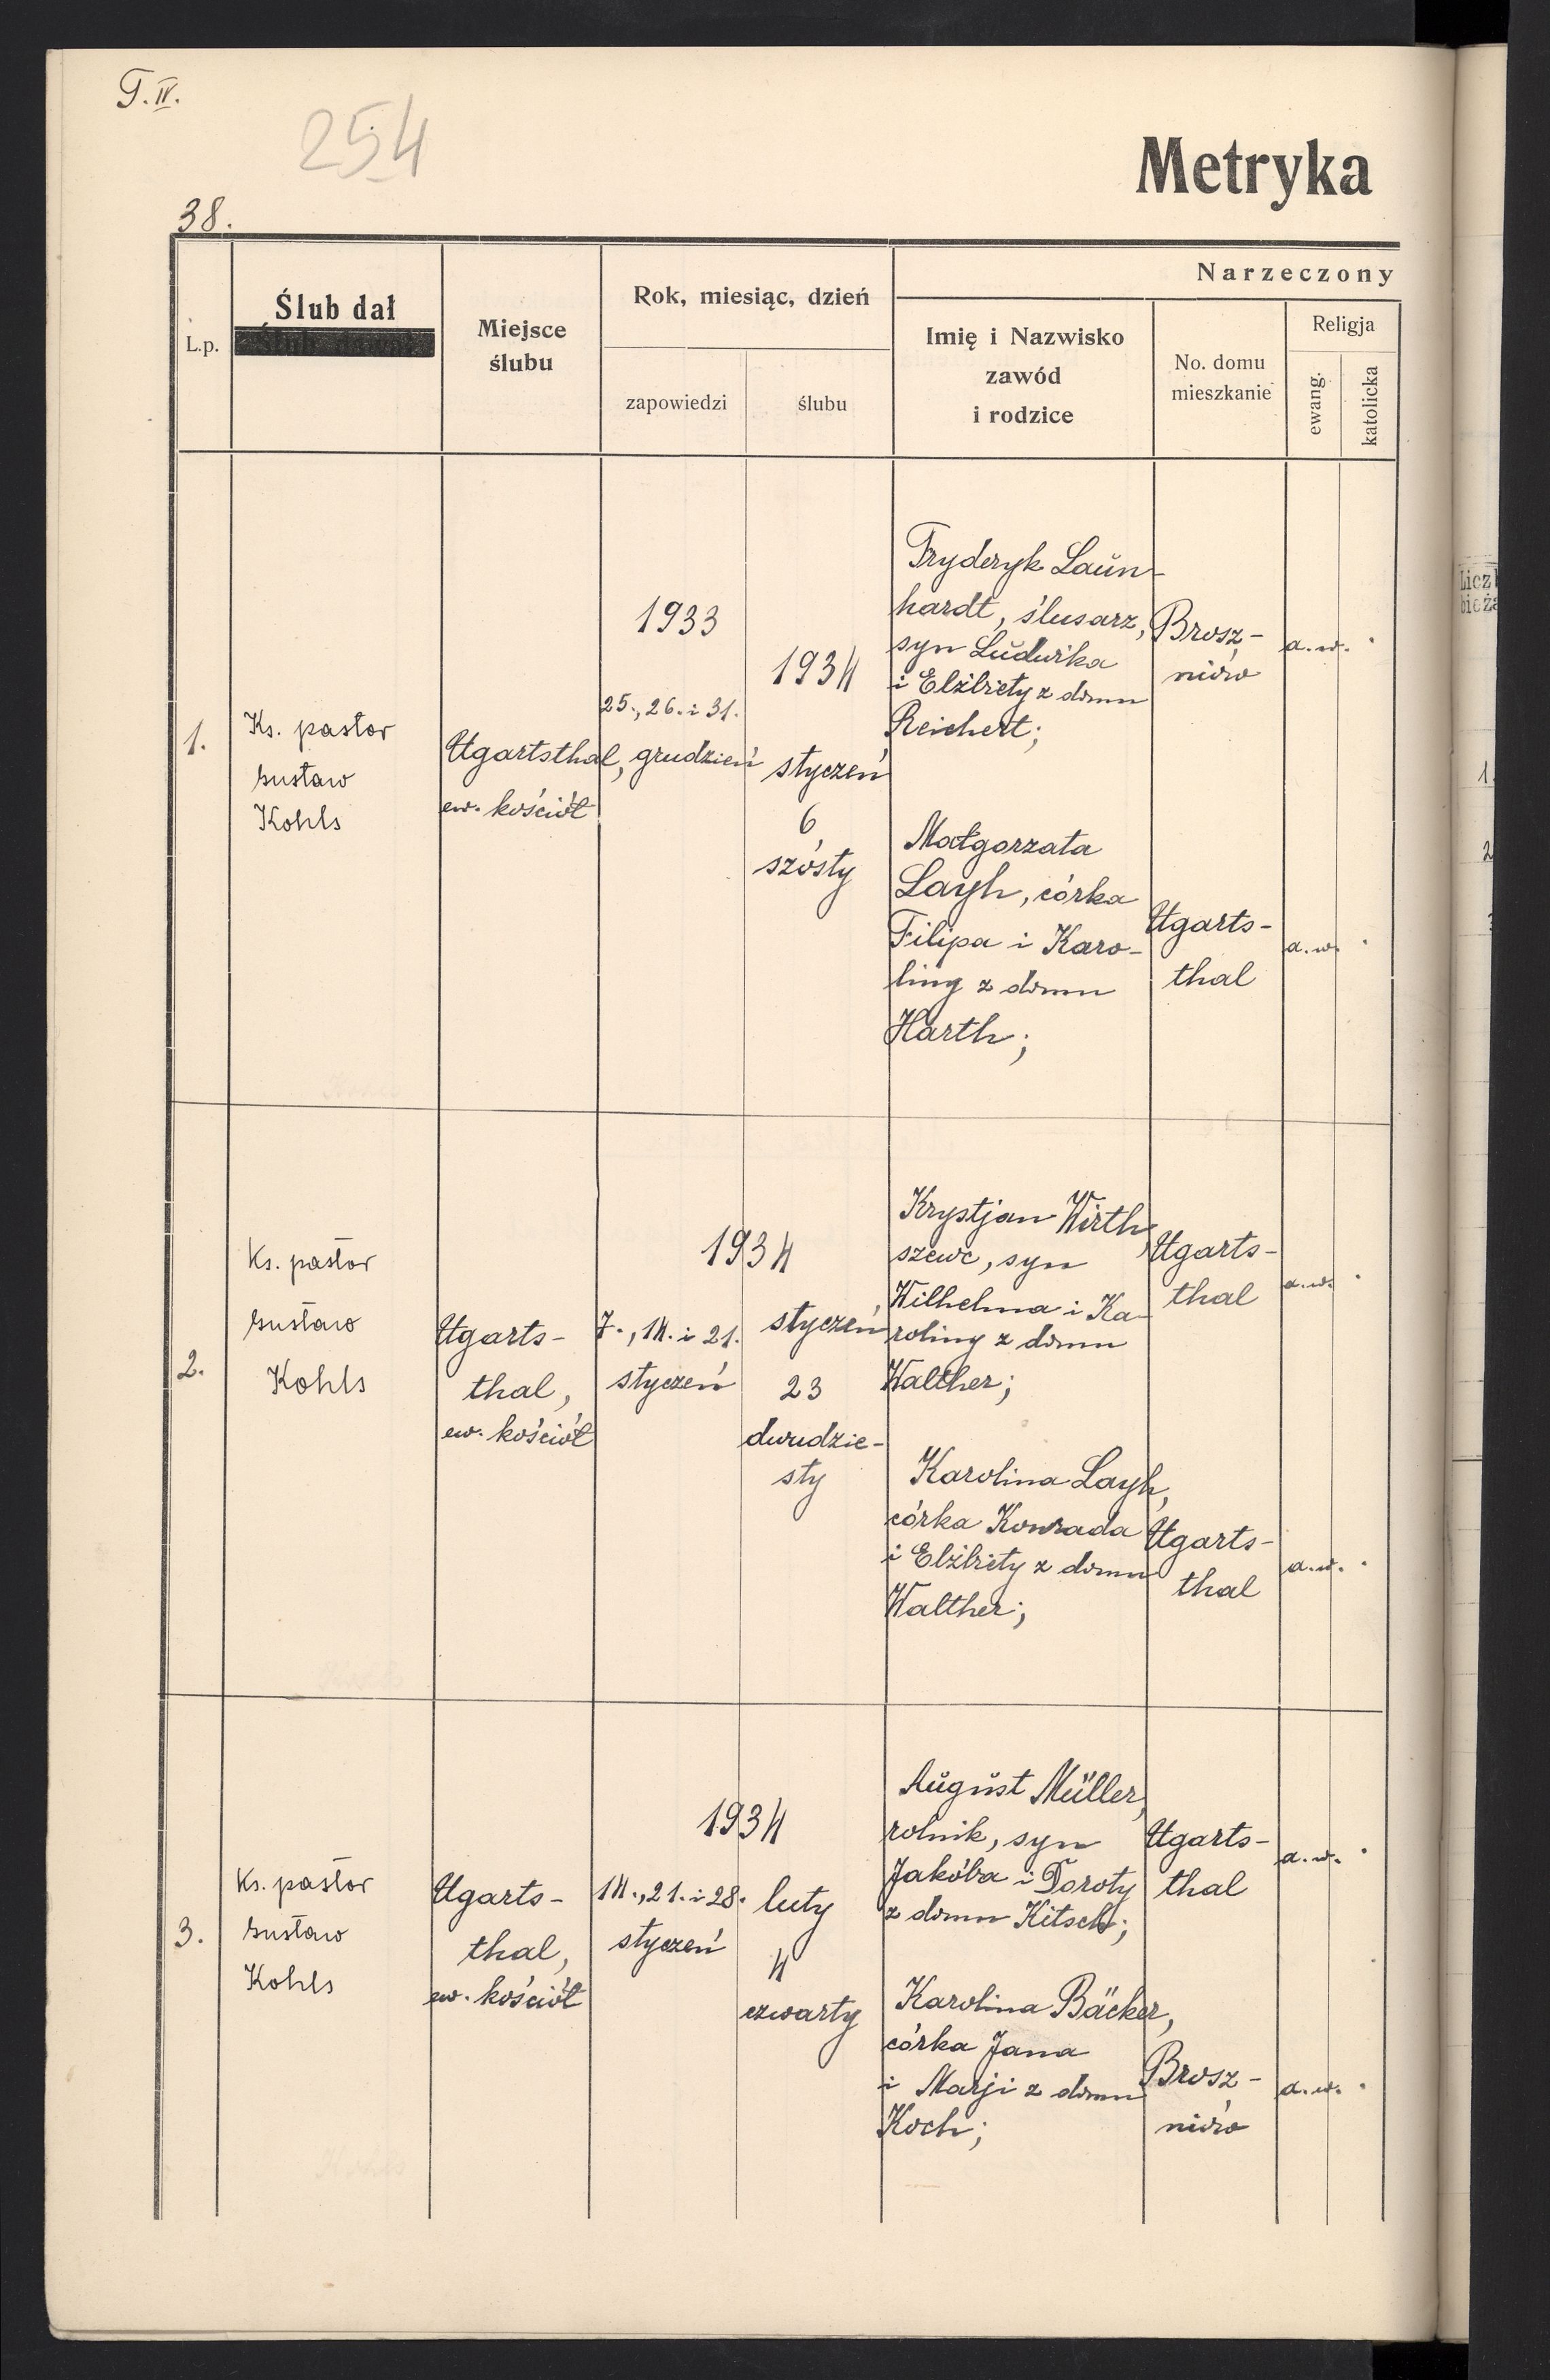 T. IV.
254
Metryka
38.
L.p.
Ślub dał
Miejsce
ślubu
Rok, miesiąc, dzień
zapowiedzi
ślubu
Narzeczony
Imię i Nazwisko
zawód
i rodzice
No. domu
mieszkanie
Religja
ewang.
katolicka
1.
Ks. pastor
Gustaw
Kohls
Ugartsthal,
ew. kościół
1933
25., 26. i 31.
grudzień
1934
styczeń
6
szósty
Fryderyk Laun-
hardt, ślusarz,
syn Ludwika
i Elżbiety z domu
Reichert;
Brosz-
niów
a.w.
Małgorzata
Layh, córka
Filipa i Karo-
liny z domu
Harth;
Ugarts-
thal
a.w.
2.
Ks. pastor
Gustaw
Kohls
Ugarts-
thal,
ew. kościół
1934
7., 14. i 21.
styczeń
styczeń
23
dwudzie-
sty
Krystjan Wirth,
szewc, syn
Wilhelma i Ka-
roliny z domu
Walther;
Ugarts-
thal
a.w.
Karolina Layh,
córka Konrada
i Elżbiety z domu
Walther;
Ugarts-
thal
a.w.
3.
Ks. pastor
Gustaw
Kohls
Ugarts-
thal,
ew. kościół
1934
14., 21. i 28.
styczeń
luty
4
czwarty
August Müller,
rolnik, syn
Jakóba i Doroty
z domu Kitsch;
Ugarts-
thal
a.w.
Karolina Bäcker,
córka Jana
i Marji z domu
Koch;
Brosz-
niów
a.w.
Licz
bieża
1.
2